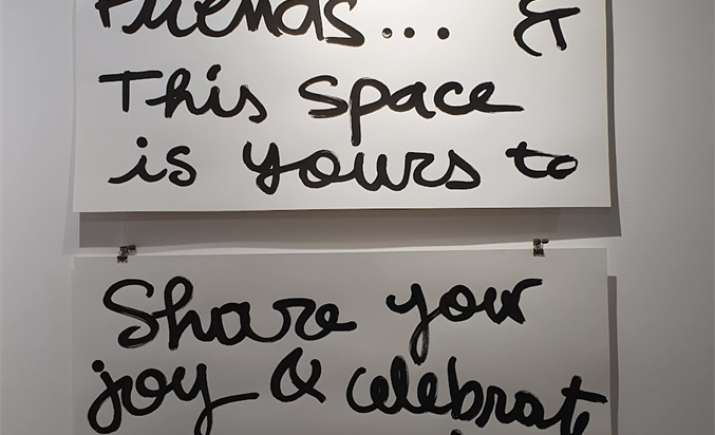 Friends... &
This space
is yours to
Share your
joy & celebrate